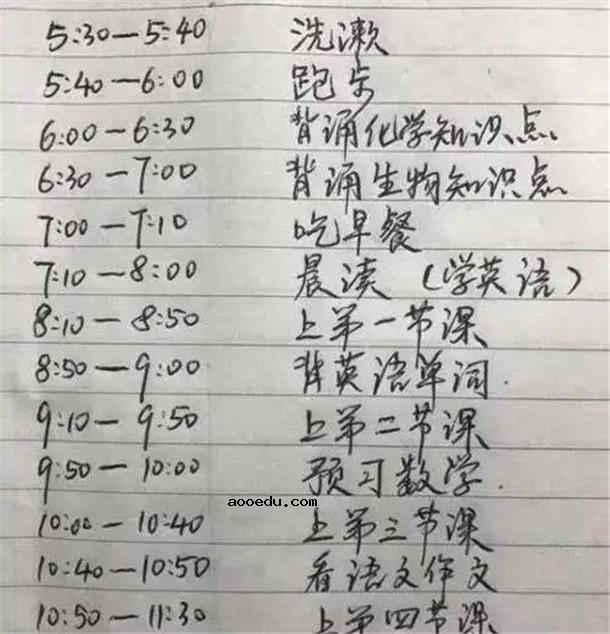 5:30—5:40 洗漱
5:40—6:00 跑步
6:00—6:30 背诵化学知识点
6:30—7:00 背诵生物知识点
7:00—7:10 吃早餐
7:10—8:00 晨读（学英语）
8:10—8:50 上第一节课
8:50—9:00 背英语单词.
9:10—9:50 上第二节课
9:50—10:00 预习数学.
aooedu.com
10:00—10:40 上第三节课
10:40—10:50 看语文作文
10:50—11:30 上第四节课